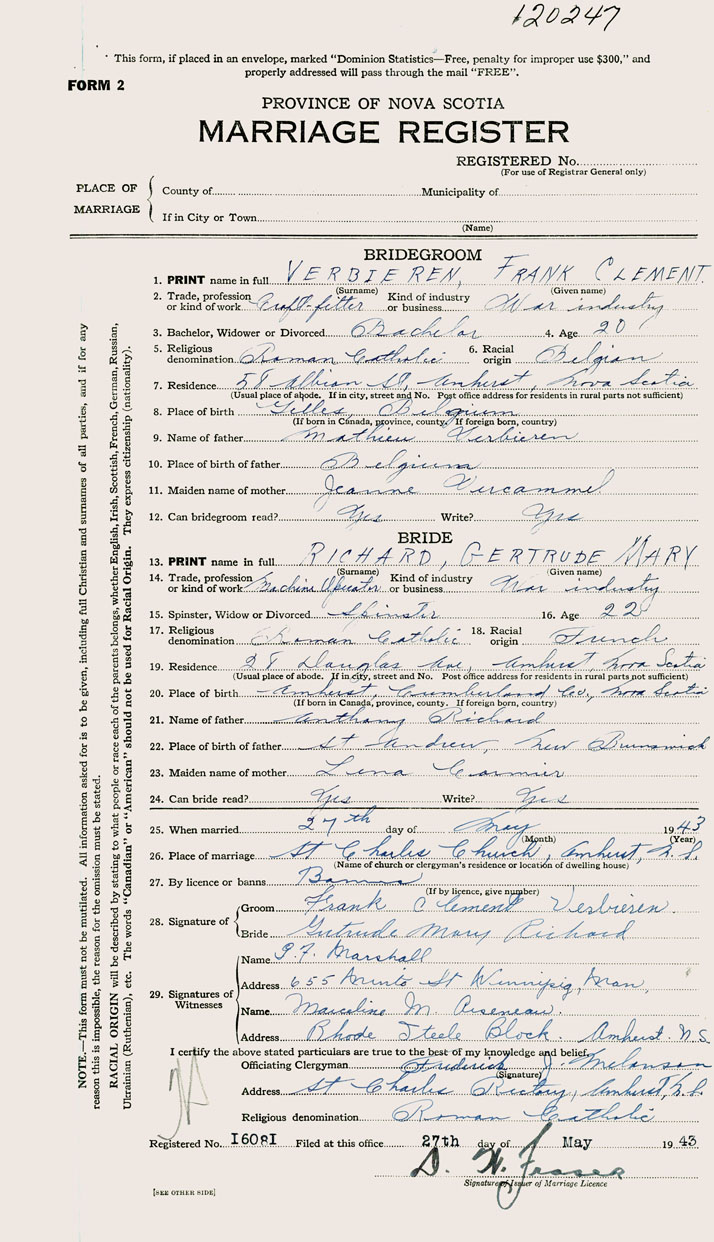 120247
This form, if placed in an envelope, marked "Dominion Statistics—Free, penalty for improper use $300," and
properly addressed will pass through the mail "FREE".
FORM 2
PROVINCE OF NOVA SCOTIA
MARRIAGE REGISTER
REGISTERED No.
(For use of Registrar General only)
PLACE OF MARRIAGE
County of Municipality of
If in City or Town
(Name)
BRIDEGROOM
1. PRINT name in full VERBIEREN, FRANK CLEMENT.
(Surname) (Given name)
2. Trade, profession or kind of work Craft-fitter Kind of industry or business War industry
3. Bachelor, Widower or Divorced Bachelor 4. Age 20
5. Religious denomination Roman Catholic 6. Racial origin Belgian
7. Residence 58 Albion St, Amherst, Nova Scotia
(Usual place of abode. If in city, street and No. Post office address for residents in rural parts not sufficient)
8. Place of birth Gilles, Belgium
(If born in Canada, province, county. If foreign born, country)
9. Name of father Mathieu Verbieren
10. Place of birth of father Belgium
11. Maiden name of mother Jeanne Vercammel
12. Can bridegroom read? Yes Write? Yes
BRIDE
13. PRINT name in full RICHARD, GERTRUDE MARY
(Surname) (Given name)
14. Trade, profession or kind of work Machine Operator Kind of industry or business War industry
15. Spinster, Widow or Divorced Spinster 16. Age 22
17. Religious denomination Roman Catholic 18. Racial origin French
19. Residence 28 Douglas Ave, Amherst, Nova Scotia
(Usual place of abode. If in city, street and No. Post office address for residents in rural parts not sufficient)
20. Place of birth Amherst, Cumberland Co., Nova Scotia
(If born in Canada, province, county. If foreign born, country)
21. Name of father Anthony Richard
22. Place of birth of father St Andrew, New Brunswick
23. Maiden name of mother Lena Cormier
24. Can bride read? Yes Write? Yes
25. When married 27th day of May 1943
(Month) (Year)
26. Place of marriage St Charles Church, Amherst, N.S.
(Name of church or clergyman's residence or location of dwelling house)
27. By licence or banns Banns
(If by licence, give number)
28. Signature of
Groom Frank Clement Verbieren.
Bride Gertrude Mary Richard
29. Signatures of Witnesses
Name P.F. Marshall
Address 655 Minto St Winnipig, Man,
Name M. Arseneau.
Address Rhode Steele Block. Amherst. N.S
I certify the above stated particulars are true to the best of my knowledge and belief.
Officiating Clergyman Frederick J. Melanson
(Signature)
Address St Charles Rectory, Amherst, N.S.
Religious denomination Roman Catholic
Registered No. I608I Filed at this office 27th day of May 19 43
D. W. Fraser
Signature of Issuer of Marriage Licence
[SEE OTHER SIDE]
NOTE.—This form must not be mutilated. All information asked for is to be given, including full Christian and surnames of all parties, and if for any
reason this is impossible, the reason for the omission must be stated.
RACIAL ORIGIN will be described by stating to what people or race each of the parents belongs, whether English, Irish, Scottish, French, German, Russian,
Ukrainian (Ruthenian), etc. The words "Canadian" or "American" should not be used for Racial Origin. They express citizenship (nationality).